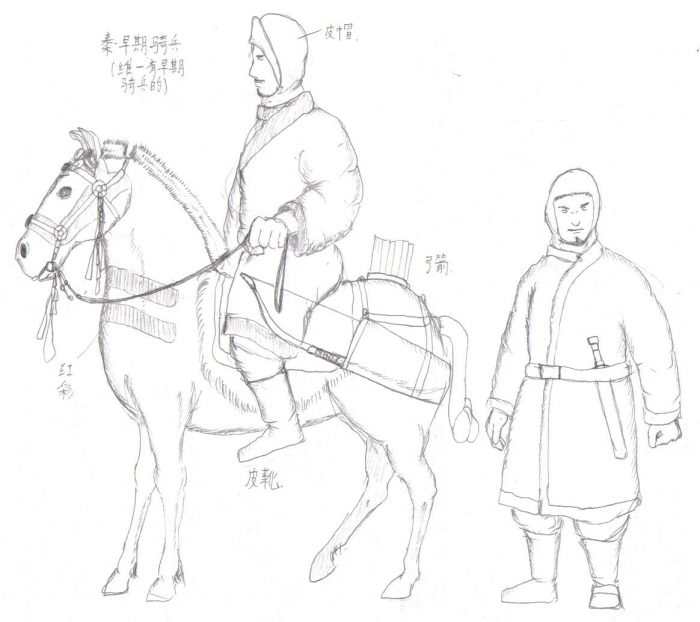 秦·早期骑兵
(维一有早期
骑兵的)
皮帽.
弓箭.
红
彩
皮靴.